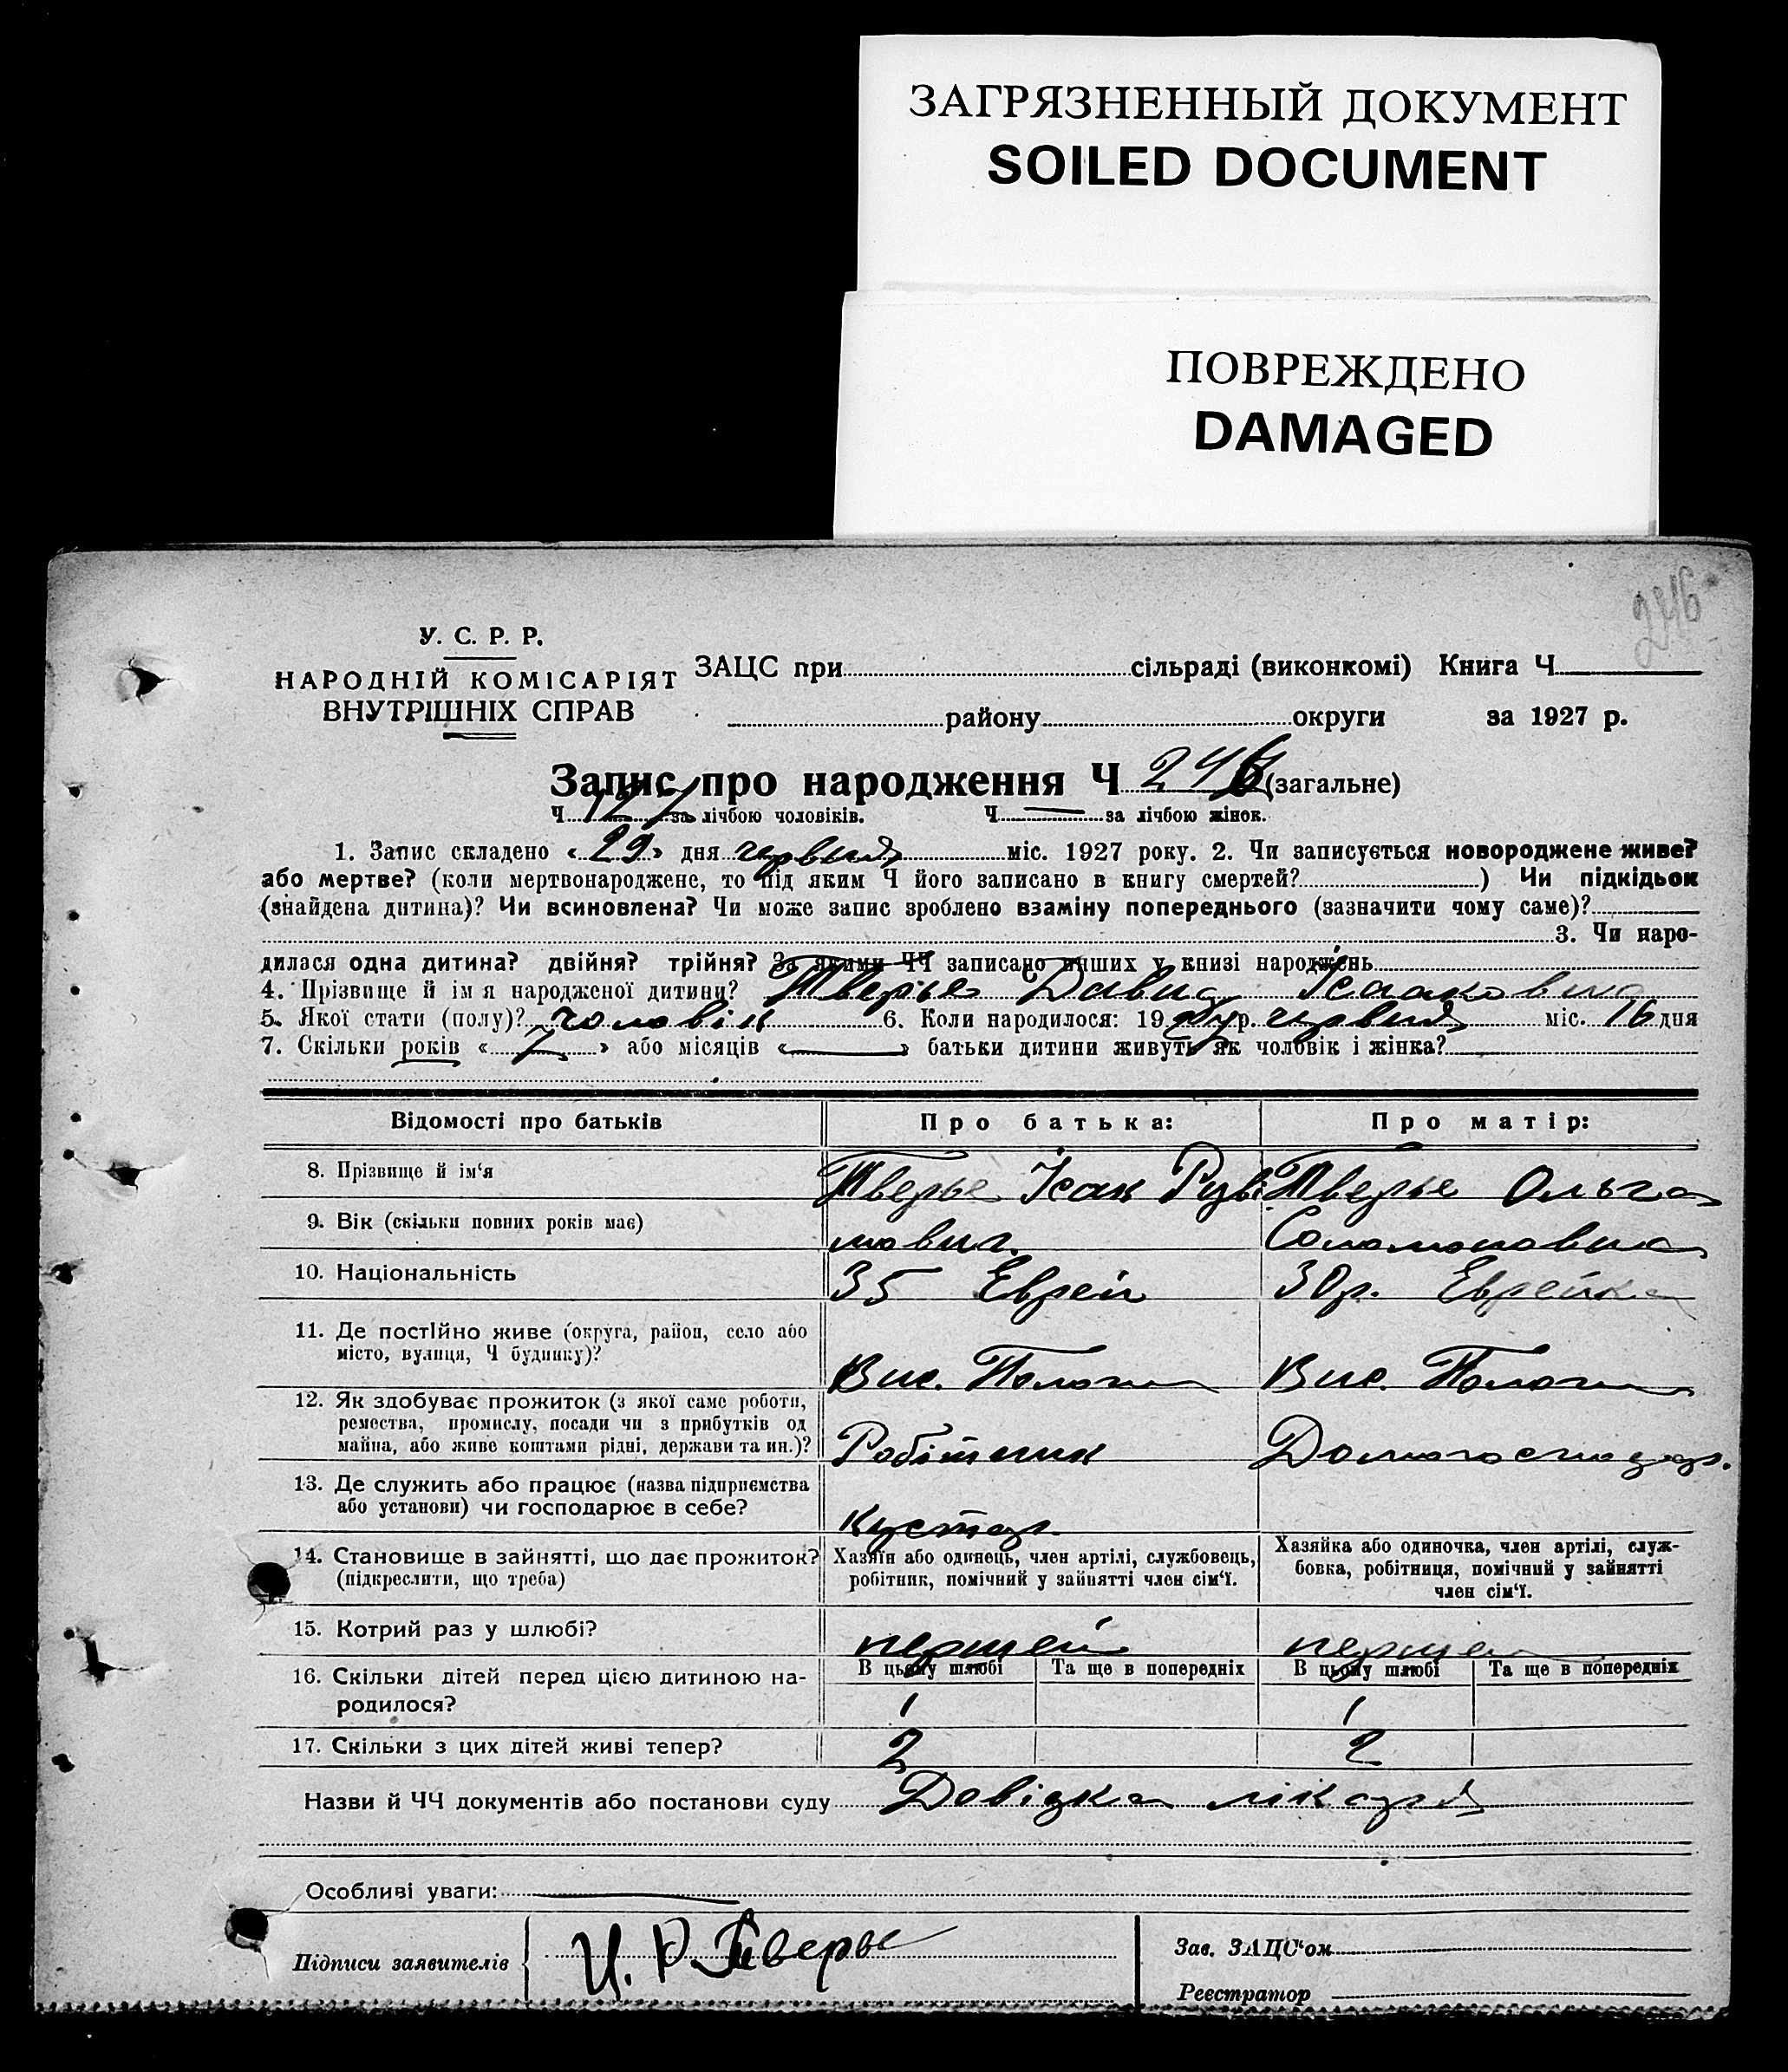 ЗАГРЯЗНЕННЫЙ ДОКУМЕНТ
SOILED DOCUMENT
ПОВРЕЖДЕНО
DAMAGED
246
У. С. Р. Р.
НАРОДНІЙ КОМІСАРІЯТ
ВНУТРІШНІХ СПРАВ
ЗАЦС при сільраді (виконкомі) Книга Ч
району округи за 1927 р.
Запис про народження Ч 246 (загальне)
Ч 127 за лічбою чоловіків. Ч — за лічбою жінок.
1. Запис складено « 29 » дня червня міс. 1927 року. 2. Чи записується новороджене живе?
або мертве? (коли мертвонароджене, то під яким Ч його записано в книгу смертей? ) Чи підкідьок
(знайдена дитина)? Чи всиновлена? Чи може запис зроблено взаміну попереднього (зазначити чому саме)?
3. Чи наро-
дилася одна дитина? двійня? трійня? За якими ЧЧ записано инших у книзі народжень
4. Прізвище й ім я народженої дитини? Тверье Давид Ісаакович
5. Якої стати (полу)? чоловік 6. Коли народилося: 19 27 р. червня міс. 16 дня
7. Скільки років « 7 » або місяців « — » батьки дитини живуть як чоловік і жінка?
Відомості про батьків Про батька: Про матір:
8. Прізвище й ім‘я Тверье Ісак Руві Тверье Ольга
9. Вік (скільки повних років має) мович. Соломоновна
10. Національність 35 Еврей 30р. Еврейка
11. Де постійно живе (округа, район, село або
місто, вулиця, Ч будинку)? Вис. Пологи Вис. Пологи
12. Як здобуває прожиток (з якої саме роботи,
ремества, промислу, посади чи з прибутків од
майна, або живе коштами рідні, держави та ин.)? Робітник Домогосподар.
13. Де служить або працює (назва підприємства
або установи) чи господарює в себе? Кустар.
14. Становище в зайнятті, що дає прожиток?
(підкреслити, що треба)
Хазяїн або одинець, член артілі, службовець,
робітник, помічний у зайнятті член сім‘ї.
Хазяйка або одиночка, член артілі, служ-
бовка, робітниця, помічний у зайнятті
член сім‘ї.
15. Котрий раз у шлюбі? першей першей
16. Скільки дітей перед цією дитиною на-
родилося?
В цьому шлюбі Та ще в попередніх В цьому шлюбі Та ще в попередніх
1 1
17. Скільки з цих дітей живі тепер? 2 2
Назви й ЧЧ документів або постанови суду Довідка лікаря
Особливі уваги: —
Підписи заявителів И. Р. Тверье
Зав. ЗАЦС‘ом
Реєстратор